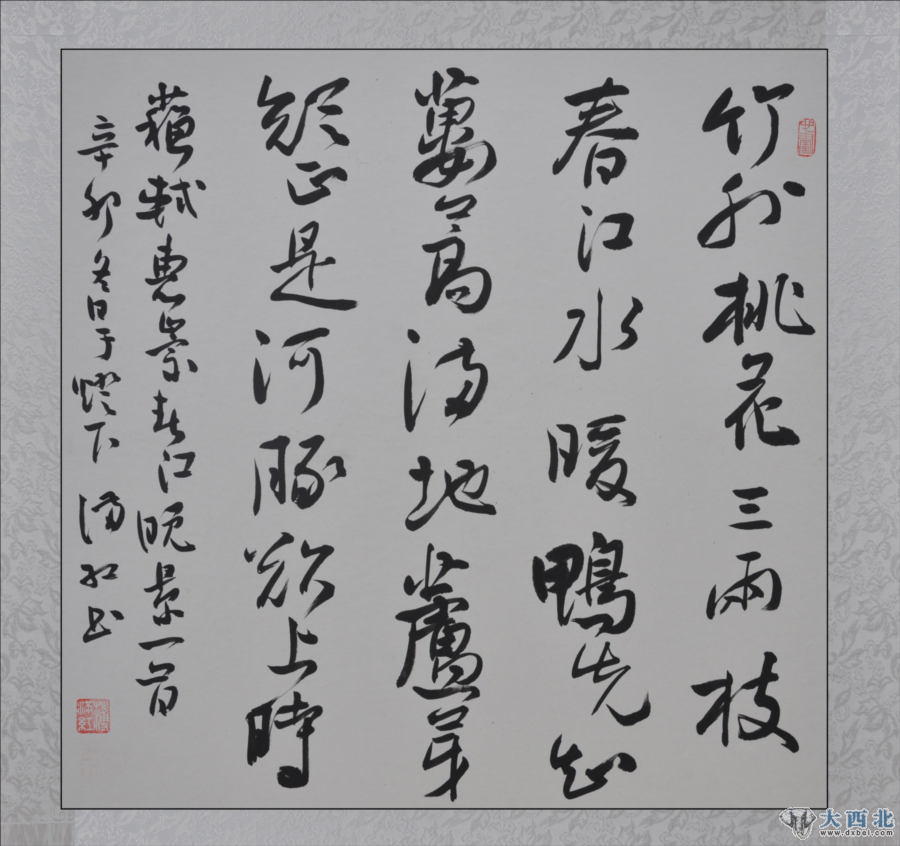 竹外桃花三兩枝
春江水暖鴨先知
蔞蒿滿地蘆芽
短正是河豚欲上時
蘇軾惠崇春江晚景一首
辛卯冬日于燈下滿紅書
大西北
www.dxbei.com